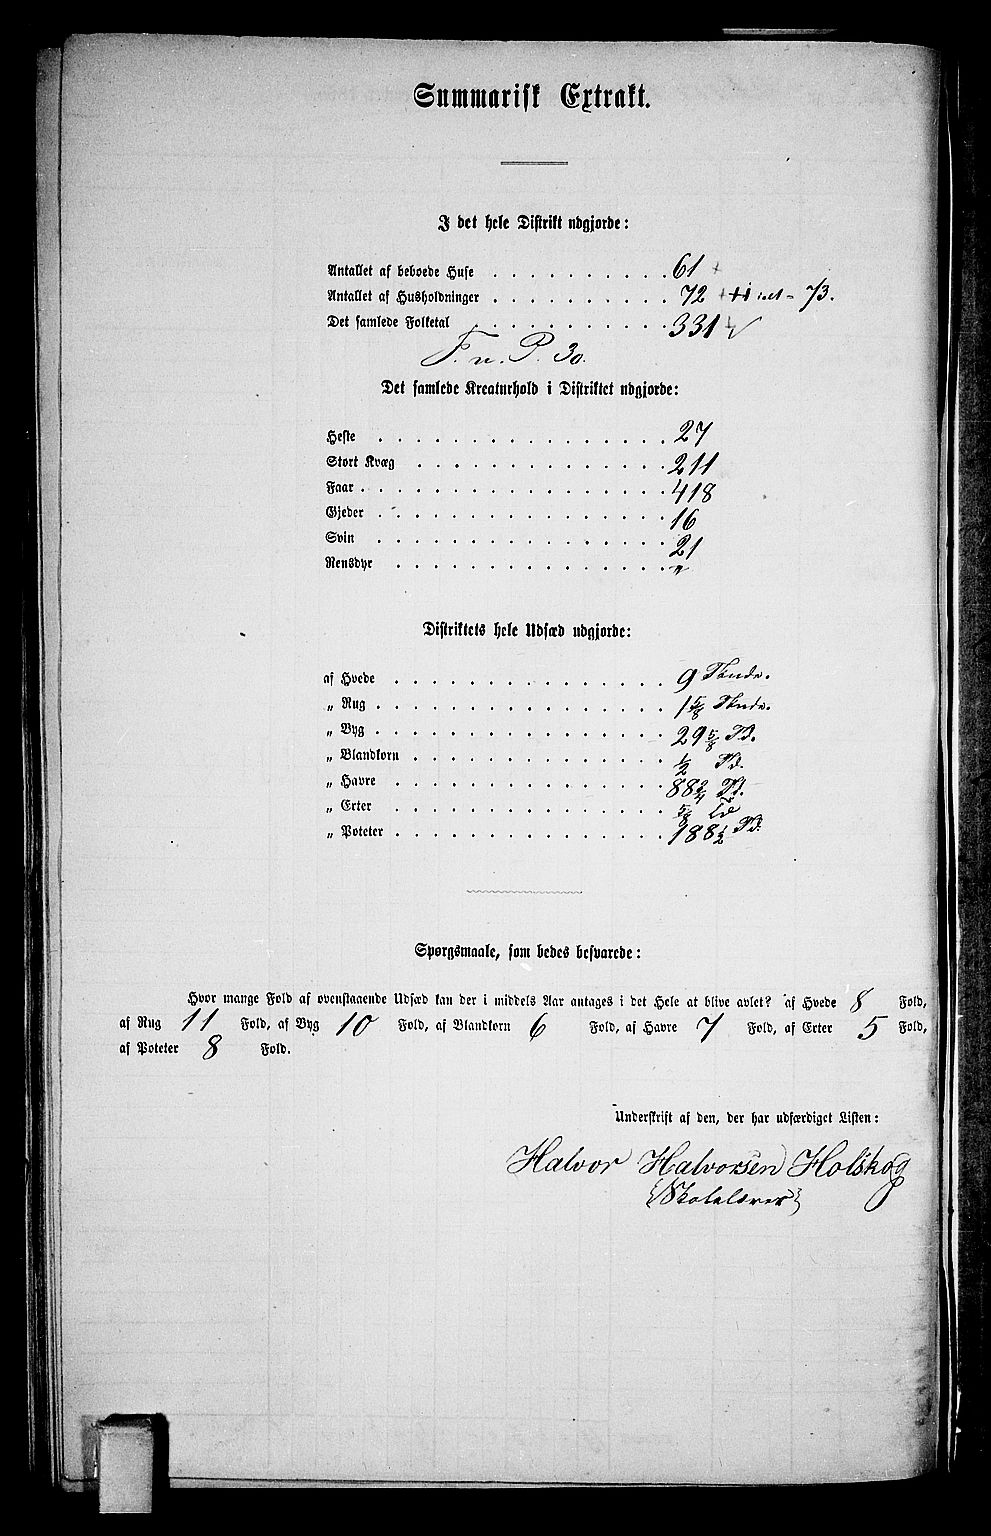 Summarisk Extrakt.
I det hele Distrikt udgjorde:
Antallet af beboede Huse . . . . . . . . . . 61 +
Antallet af Husholdninger . . . . . . . . . . 72 + 73.
Det samlede Folketal . . . . . . . . . . . 331
F. n. P. 30.
Det samlede Kreaturhold i Distriktet udgjorde:
Heste . . . . . . . . . . . . . . . . 27
Stort Kvæg . . . . . . . . . . . . . . 211
Faar . . . . . . . . . . . . . . . . . 418
Gjeder . . . . . . . . . . . . . . . . 16
Svin . . . . . . . . . . . . . . . . 21
Rensdyr . . . . . . . . . . . . . . . "
Distriktets hele Udsæd udgjorde:
af Hvede . . . . . . . . . . . . . . . 9 Tønde.
„ Rug . . . . . . . . . . . . . . . . 1 5/8 Tønde.
„ Byg . . . . . . . . . . . . . . . . 29 5/8 Td.
„ Blandkorn . . . . . . . . . . . . . . 1/2 Td.
„ Havre . . . . . . . . . . . . . . . 88 3/4 Td.
„ Erter . . . . . . . . . . . . . . . 5/8 Td
„ Poteter . . . . . . . . . . . . . . . 188 1/2 Td.
Spørgsmaale, som bedes besvarede:
Hvor mange Fold af ovenstaaende Udsæd kan der i middels Aar antages i det Hele at blive avlet? af Hvede 8 Fold,
af Rug 11 Fold, af Byg 10 Fold, af Blandkorn 6 Fold, af Havre 7 Fold, af Erter 5 Fold,
af Poteter 8 Fold.
Underskrift af den, der har udfærdiget Listen:
Halvor Halvorsen Holskog
{Skolelærer}